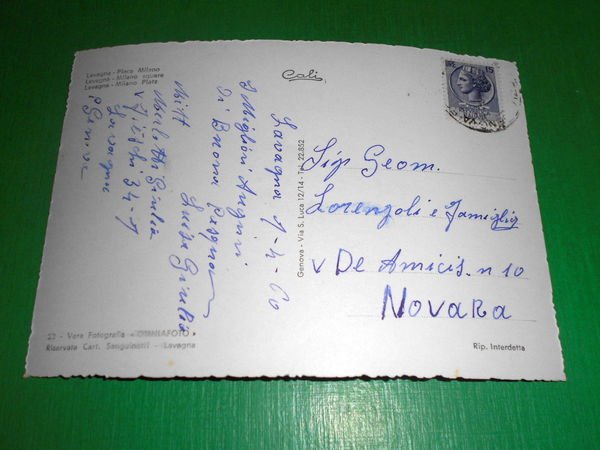 Lavagna - Piaza Milano
Lavagna - Milano square
Lavagna - Milano Platz
Cali
Genova - Via S. Luca 12/14 - Tel. 22.852
Lavagna 9-4-60
I Migliori Auguri
Di Buona Pasqua
Luisa Giulia
Mitt
Giulia
34-1
Lavagna
Genova
Sig Geom.
Lorenzoli e Famiglia
v De Amicis. n 10
NOVARA
22 - Vera Fotografia «OMNIAFOTO»
Riservata Cart. Sanguineti - Lavagna
Rip. Interdetta